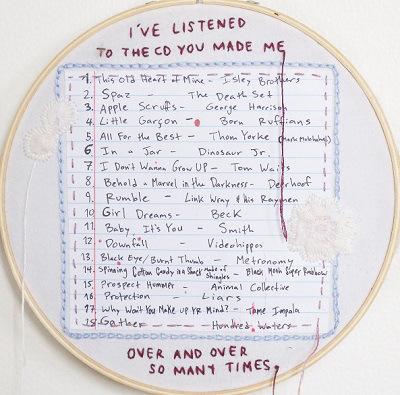 I'VE LISTENED
TO THE CD YOU MADE ME
1. This Old Heart of Mine - Isley Brothers
2. Spaz - The Death Set
3. Apple Scruffs - George Harrison
4. Little Garçon - Born Ruffians
5. All For the Best - Thom Yorke (Mark Mulcahy)
6. In a Jar - Dinosaur Jr.
7. I Don't Wanna Grow UP - Tom Waits
8. Behold a Marvel in the Darkness - Deerhoof
9. Rumble - Link Wray & his Raymen
10. Girl Dreams - Beck
11. Baby It's You - Smith
12. Downfall - Videohippos
13. Black Eye/Burnt Thumb - Metronomy
14. Spinning Cotton Candy in a Shack Made of Shingles - Black Moth Super Rainbow
15. Prospect Hummer - Animal Collective
16. Protection - Liars
17. Why Won't You Make up YR Mind? - Tame Impala
18. Gather Hundred Waters
OVER AND OVER
SO MANY TIMES.